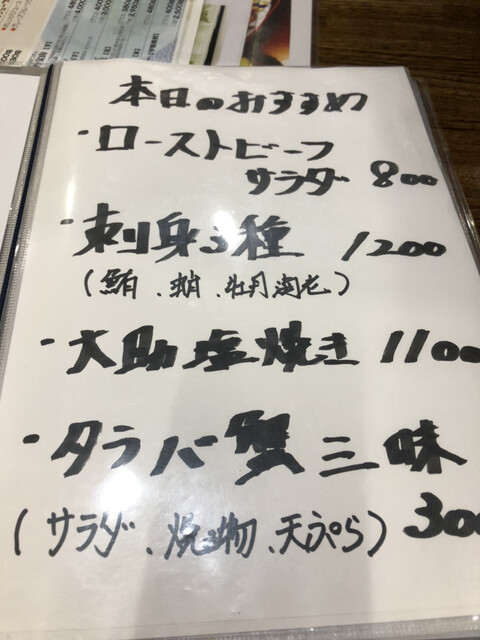 本日のおすすめ
・ローストビーフ
サラダ 800
・刺身3種 1200
(鮪、蛸、牡丹海老)
・大助塩焼き 1100
・タラバ蟹三昧
(サラダ、焼き物、天ぷら) 300